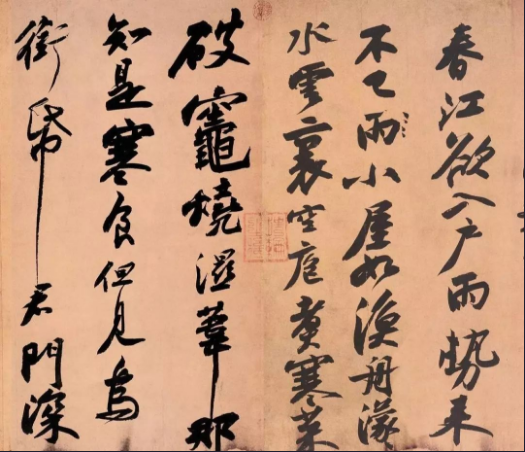 春江欲入户雨勢来
不已雨小屋如漁舟濛
水雲裏空庖煮寒菜
破竈燒濕葦那
知是寒食但見烏
銜帋君門深